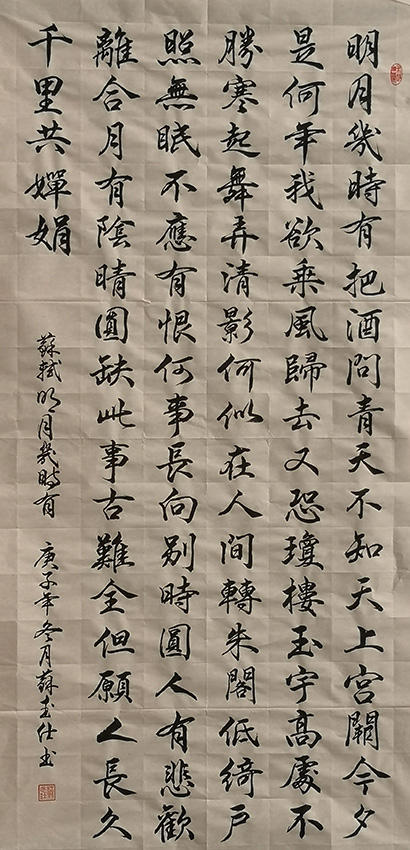 明月幾時有把酒問青天不知天上宮闕今夕
是何年我欲乘風歸去又恐瓊樓玉宇高處不
勝寒起舞弄清影何似在人間轉朱閣低綺戶
照無眠不應有恨何事長向別時圓人有悲歡
離合月有陰晴圓缺此事古難全但願人長久
千里共嬋娟
蘇軾明月幾時有 庚子年冬月蘇仕书